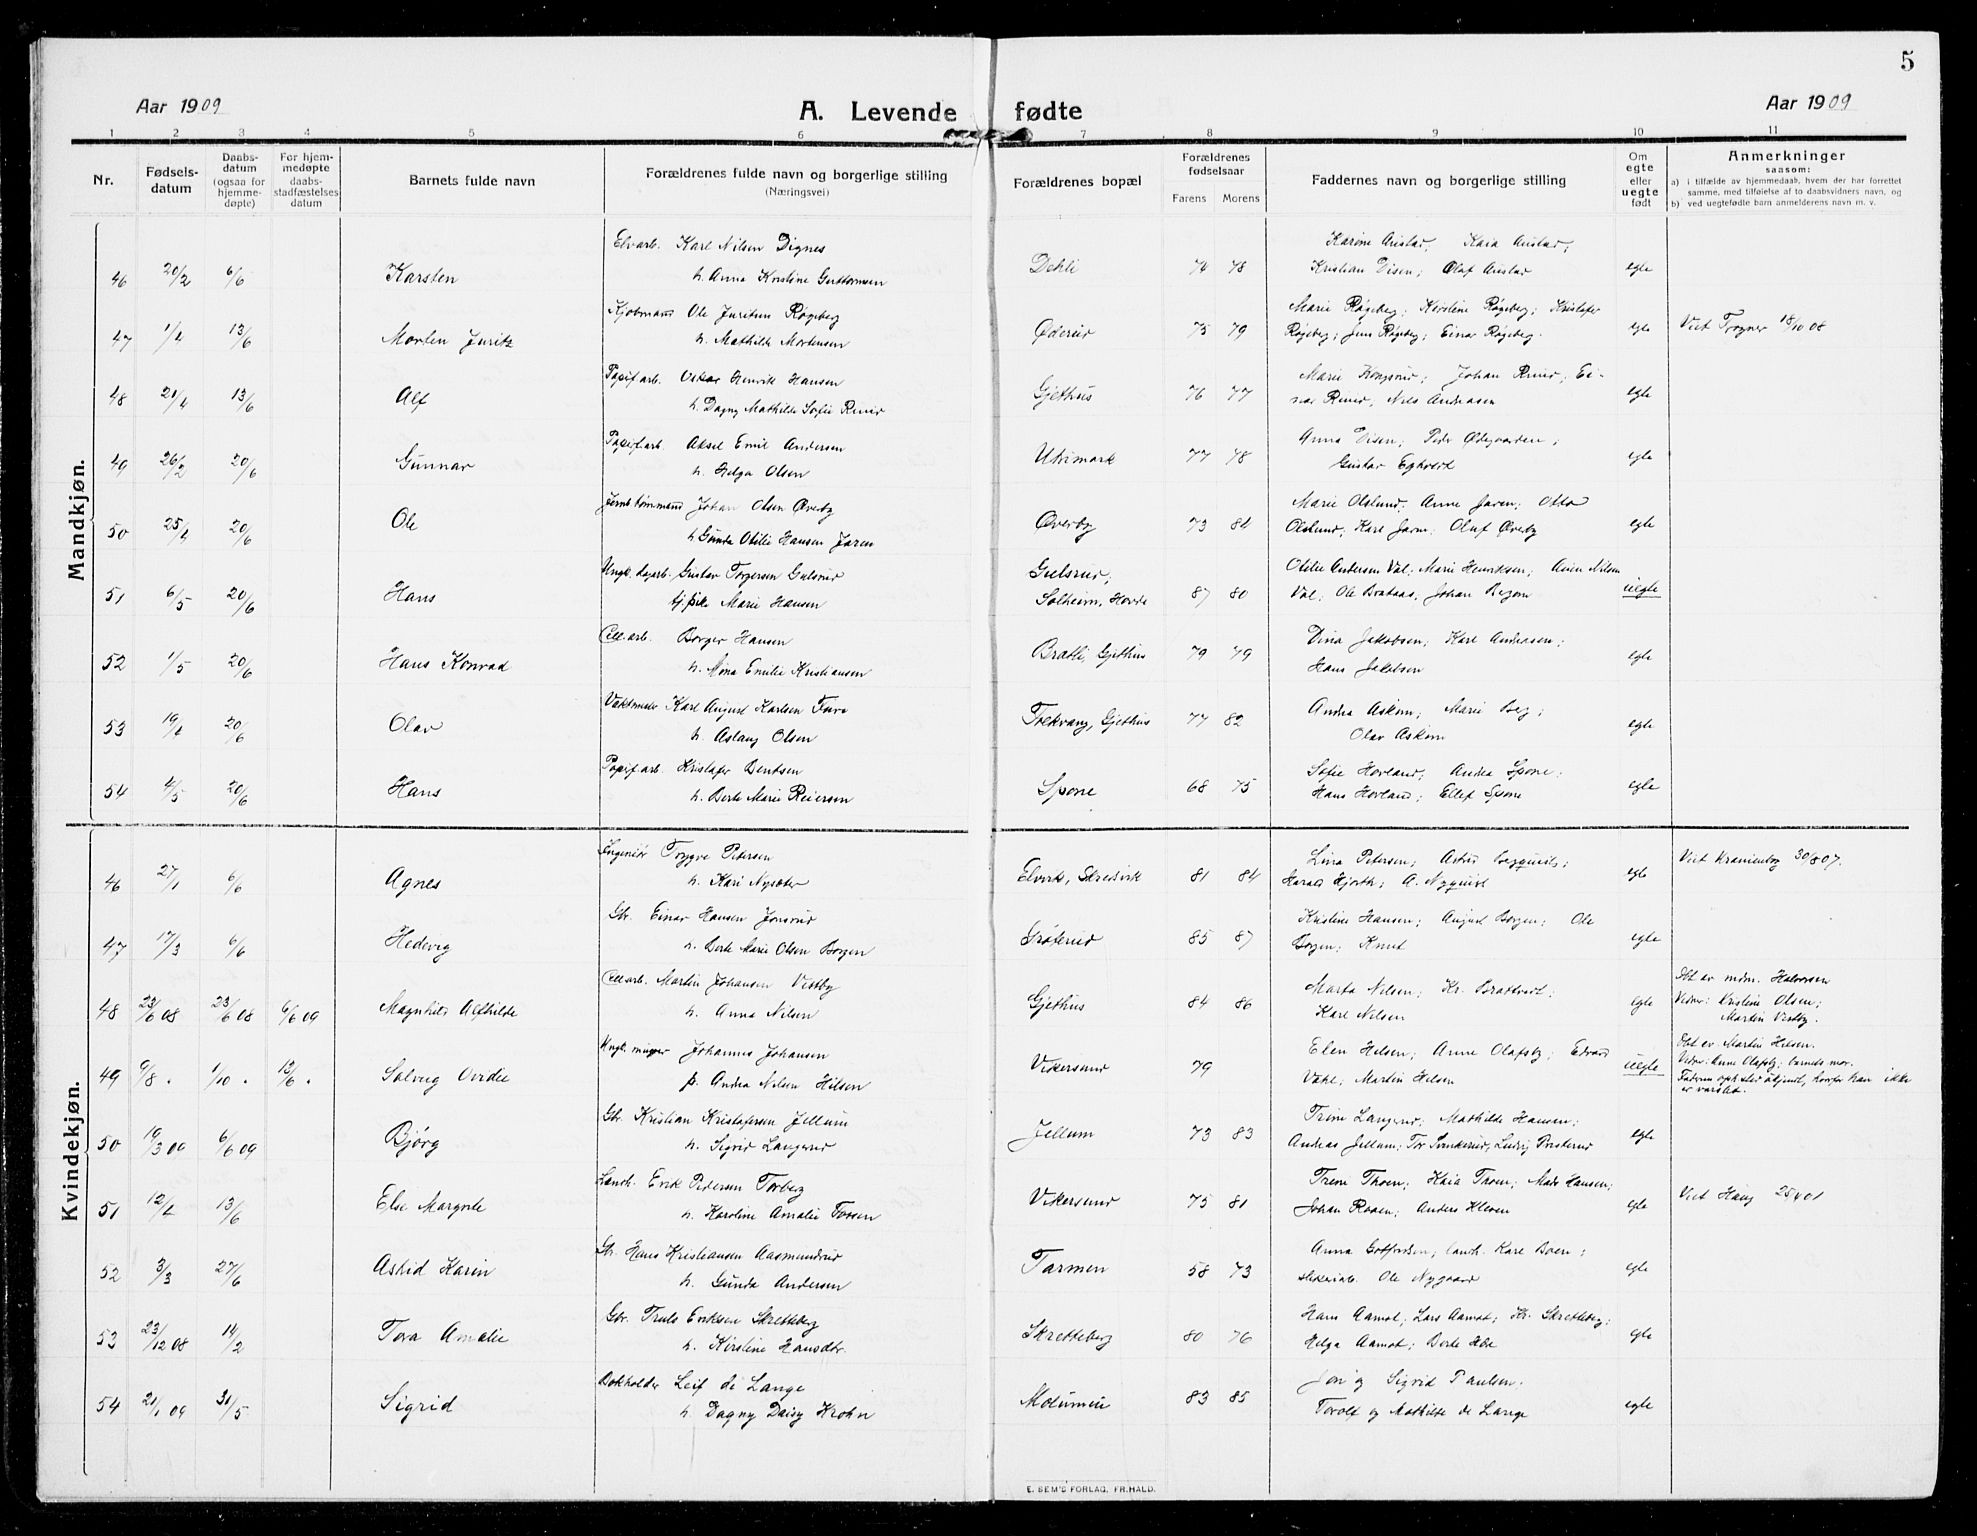 5
Aar 1909 A. Levende fødte Aar 1909
1 2 3 4 5 6 7 8 9 10 11
Nr. Fødselsdatum Daabsdatum (ogsaa for hjemmedøpte) For hjemmedøpte daabsstadfæstelses datum Barnets fulde navn Forældrenes fulde navn og borgerlige stilling (Næringsvei) Forældrenes bopæl Forældrenes fødselsaar Farens Morens Faddernes navn og borgerlige stilling Om egte eller uegte født Anmerkninger saasom:
a) i tilfælde av hjemmedaab, hvem der har forrettet samme, med tilføielse af to daabsvidners navn, og
b) ved uegtefødte barn anmelderens navn m. v.
Mandkjøn.
Elvarb. Karl Nilsen Dignes
46 20/2 6/6 Karsten h. Anna Kristine Guttormsen Dehli 74 78 Kristian Disen; Olaf egte
Kjøbmand Ole Juritzen Røgeberg Marie Røgeberg; Røgeberg; Kristofer
47 1/4 13/6 Morten Juritz h. Mathilde Mortensen Øderud 75 79 Røgeberg; Jens Røgeberg; Einar Røgeberg. egte Viet Frogner 18/10 08
Papirfarb. Oskar Henrik Hansen Marie Kongsrud; Johan Ruud; Ei-
48 21/4 13/6 Alf h. Dagny Mathilde Sofie Ruud Gjethus 76 77 nar Ruud, Nils Andreasen egte
Papirfarb. Aksel Emil Andersen Anna Disen; Peder Ødegaarden;
49 26/2 20/6 Gunnar h. Helga Olsen Utvimark 77 78 Gustav egte
Johan Olsen Øverby Marie Olslund. Anne Jaren; Otto
50 25/4 20/6 Ole h. Gunda Otilie Hansen Jaren Øverby 73 81 Olslund, Karl Jaren; Oluf Øverby egte
Ungk. dagarb. Gustav Torgersen Gulsrud Gulsrud; Otilie Andersen Val; Marie Henriksen; Nilsen
51 6/5 20/6 Hans tj.pike Marie Hansen Solheim, Hovde 87 80 Val; Ole Brataas, Johan uegte
Cell.arb. Borger Hansen Dina Jakobsen; Karl Andreasen;
52 1/5 20/6 Hans Konrad h. Mina Emilie Kristiansen Bratli, Gjethus 79 79 Hans Jakobsen egte
Vaktmester Karl August Karlsen Andrea Askem; Marie Berg;
53 19/4 20/6 Olav h. Aslaug Olsen Trekvang, Gjethus 77 82 Olav Askem egte
Papirfarb. Kristofer Bentsen Sofie Hovland; Andrea Spone;
54 4/5 20/6 Hans h. Berte Marie Reiersen Spone 68 75 Hans Hovland; Ellef Spone egte
Kvindekjøn.
Ingeniør Trygve Petersen Lina Petersen; Astrid Bergquist;
46 27/1 6/6 Agnes h. Kari Nysæter Elvik, Skredsvik 81 84 Harald Hjorth; A. Nyquist egte Viet Kranienborg 30/8 07.
Gbr. Einar Hansen Jonsrud Kristine Hansen; August Borgen; Ole
47 17/3 6/6 Hedevig h. Berte Marie Olsen Borgen Grøterud 85 87 Borgen; Knut egte
Cell.arb. Martin Johansen Vestby Marta Nilsen; Kr. Brattvet; Dbt av mdm. Halvorsen
48 23/6 08 23/6 08 6/6 09 Magnhild Alfhilde h. Anna Nilsen Gjethus 84 86 Karl Nilsen egte Vidner: Kristine Olsen;
Martin Vestby.
Ungk. murer Johannes Johansen Elen Hilsen; Anne Olafsby; Edvard Dbt av Martin Hilsen.
49 9/8 " 1/10 " 13/6 " Solveig Ovidie p. Andrea Nilsen Hilsen Vikersund 79 Vahl; Martin Hilsen uegte Vidner: Anne Olafsby; barnets mor.
Faderens opholdsted ukjendt, hvorfor han ikke
er varslet.
Gbr. Kristian Kristofersen Jellum Trine Langerud, Mathilde Hansen;
50 19/3 09 6/6 09 Bjørg h. Sigrid Langerud Jellum 73 83 Andreas Jellum; Tor Svinkerud; Ludvig egte
Landh. Erik Pedersen Torberg Trine Thoen; Kaia Thoen; Mads Hansen;
51 12/4 13/6 Else Margrete h. Karoline Amalie Tovsen Vikersund 75 81 Johan Roaen; Anders Kleven egte Viet Haug 25/4 01
Gbr. Hans Kristiansen Aasmundrud Anna Gotfredsen; landh. Karl Boen;
52 3/3 27/6 Astrid Karin h. Gunda Andersen Tarmen 58 73 Ole Nygaard egte
Gbr. Truls Eriksen Skretteberg Hans Aamot; Lars Aamot; Kr. Skretteberg;
53 23/12 08 14/2 Tora Amalie h. Kirstine Hansdtr. Skretteberg 80 76 Helga Aamot; Berte egte
Bokholder Leif de Lange Jon og Sigrid Paulsen.
54 21/1 09 31/5 Sigrid h. Dagny Daisy Krohn Modumen 83 85 Torolf og Mathilde de Lange egte
E. SEM'S FORLAG, FR.HALD.